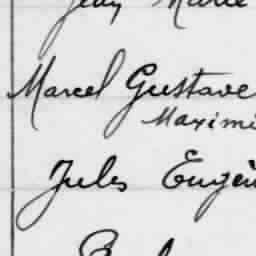 Jean Marie
Marcel Gustave
Maximi
Jules Eugèn